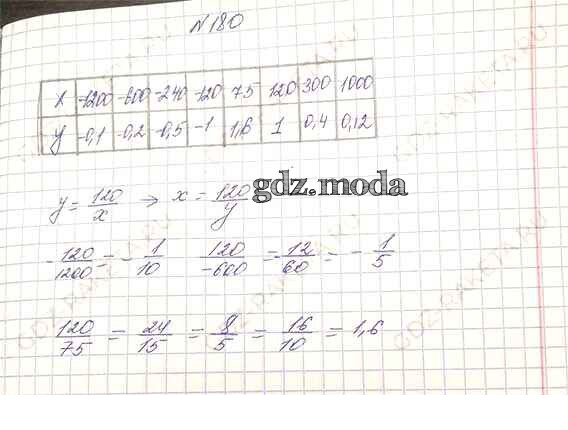 №180
x -1200 -600 -240 -120 75 120 300 1000
y -0,1 -0,2 -0,5 -1 1,6 1 0,4 0,12
y = 120/x → x = 120/y
gdz.moda
-120/1200 = -1/10 120/-600 = -12/60 = -1/5
120/75 = 24/15 = 8/5 = 16/10 = 1,6
GDZ-RAKETA.RU